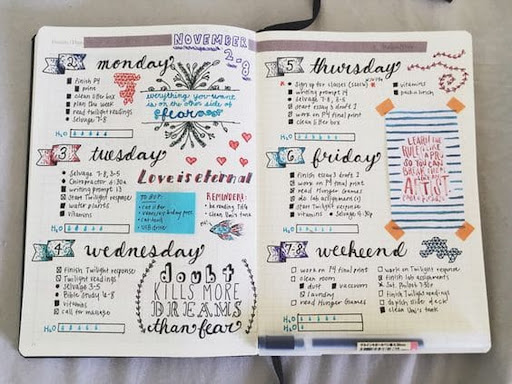 NOVEMBER
2-8
2 monday
finish P4
print
clean litter box
plan the week
read twilight readings
Selvage 7-8
H2O
everything you want
is on the other side of
fear
3 tuesday
Selvage 7-8, 3-5
Chiropractor
writing prompt 13
Start Twilight response
water plants
vitamins
H2O
Love is eternal
TO BUY:
cat litter
REMINDERS:
be reading
clean Uni's tank
4 wednesday
finish Twilight response
Twilight readings
Selvage 3-5
Bible Study 6-8
vitamins
call for massage
H2O
doubt
KILLS MORE
DREAMS
than fear
5 thursday
sign up for classes
writing prompt 14
selvage 7-8, 3-5
start essay 3 draft 1
work on P4 final print
clean litter box
vitamins
pack a lunch
H2O
6 friday
finish essay 3 draft 1
work on P4 final print
read Hunger Games
do lab assignments
start Twilight response
vitamins
Selvage
H2O
LEARN THE
RULES LIKE
A PRO,
SO YOU CAN
BREAK THEM
LIKE AN
ARTIST.
7-8 weekend
work on P4 final print
clean room
dust
vacuum
laundry
read Hunger Games
work on Twilight response
finish lab assignments
finish Twilight readings
clean Uni's tank
H2O
H2O